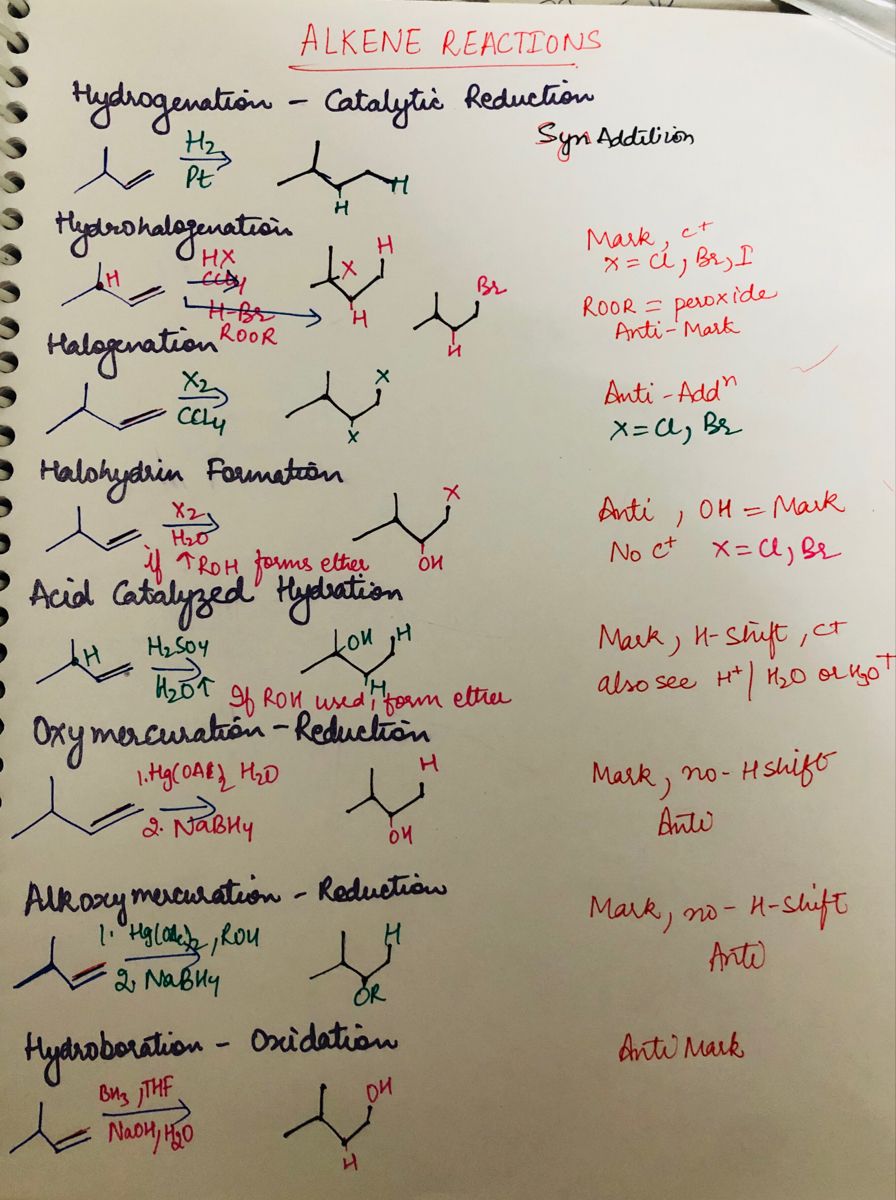 ALKENE REACTIONS
Hydrogenation - Catalytic Reduction
Syn Addition
H2
Pt
H
H
Hydrohalogenation
Mark, c+
X = Cl, Br, I
H
HX
CCl4
X
H
H
H-Br
ROOR
Br
H
ROOR = peroxide
Anti-Mark
Halogenation
X2
CCL4
X
X
Anti-Addn
X = Cl, Br
Halohydrin Formation
X2
H2O
X
OH
Anti, OH = Mark
No c+ X = Cl, Br
if ↑ ROH forms ether
Acid Catalyzed Hydration
H
H2SO4
H2O↑
OH
H
H
Mark, H-shift, c+
also see H+/H2O or H3O+
If ROH used, form ether
Oxymercuration - Reduction
1. Hg(OAc)2 H2O
2. NaBH4
H
OH
Mark, no-H shift
Anti
Alkoxymercuration - Reduction
1. Hg(OAc)2, ROH
2. NaBH4
H
OR
Mark, no-H-shift
Anti
Hydroboration - Oxidation
Anti Mark
BH3, THF
NaOH, H2O
OH
H